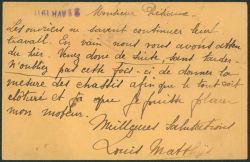 Monsieur
Les ouvriers ne savent continuer leur
travail. En vain nous vous avons attendu
du hier. Venez donc de suite, sans tarder.
N'oubliez pas cette fois-ci de donner la
mesure des chassis afin que le tout soit
clôturé et que je puisse placer
mon moteur.
Meilleures Salutations
Louis